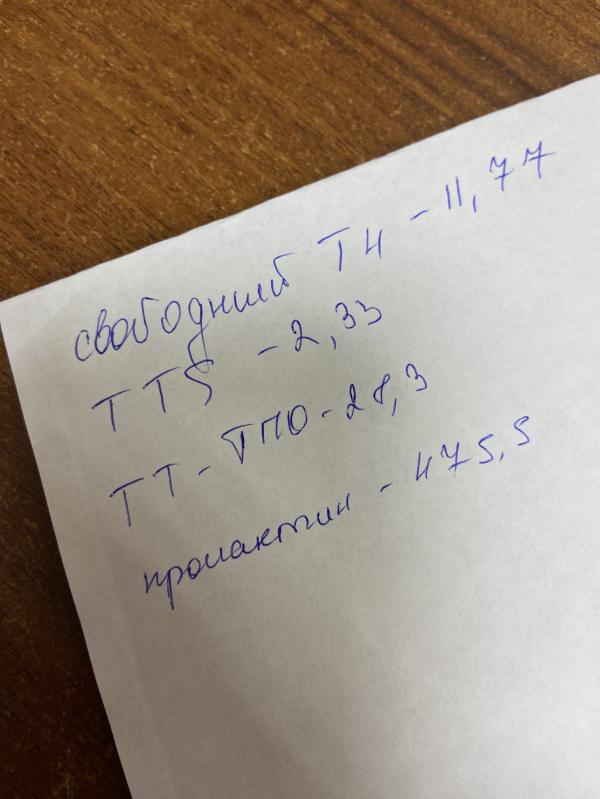 свободний Т4 - 11,77
ТТБ - 2,33
ТТ - ТПО - 28,3
пролактин - 475,5